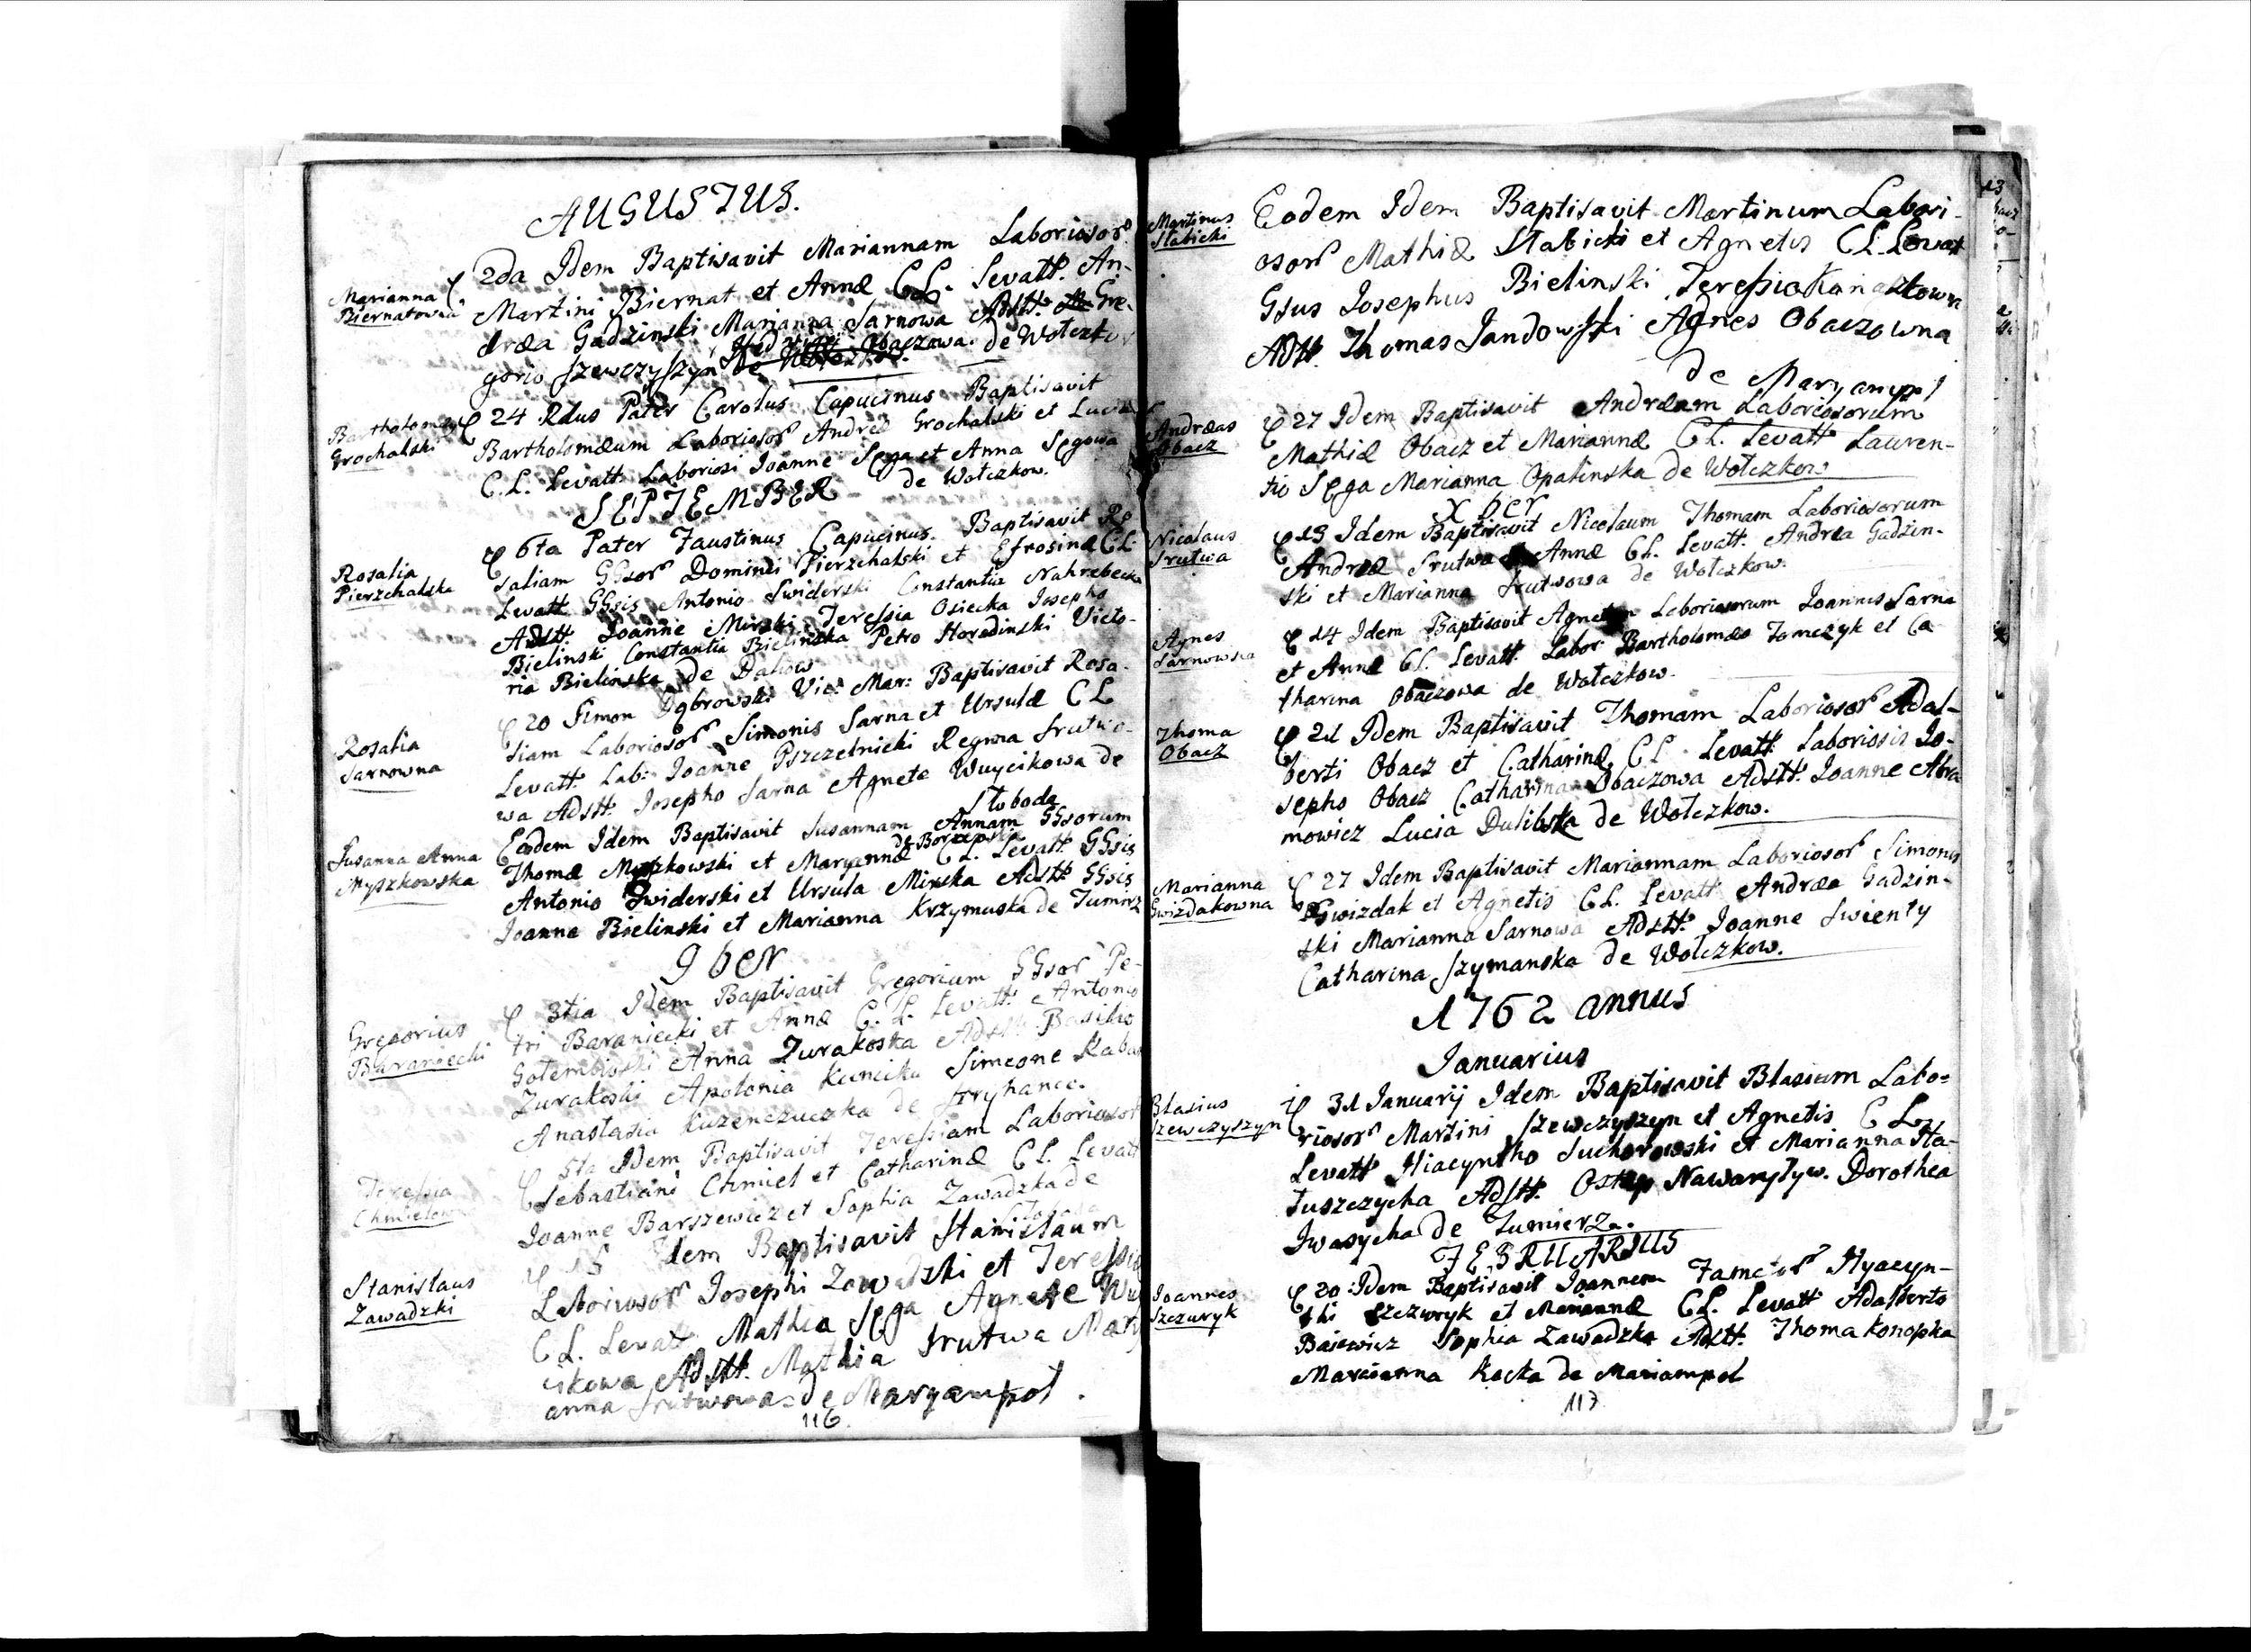 AUGUSTUS.
Marianna
Biernatowna
2da Idem Baptisavit Mariannam Laboriosor
Martini Biernat et Annæ C.L. Levatt. An-
dræa Gadzinski Marianna Sarnowa Adstt. Gre-
gorio Szewczyszyn Obaczowa. de Wołczkow
Bartholomeus
Grochalski
24 Rdus Pater Carolus Capucinus Baptisavit
Bartholomæum Laboriosor Andreæ Grochalski et Luciæ
C.L. Levatt Laboriosi Joanne Sęga et Anna Sęgowa
de Wołczkow.
SEPTEMBER
Rosalia
Pierzchalska
6ta Pater Faustinus Capucinus. Baptisavit Ro
saliam GGsor Dominici Pierzchalski et Efrosinæ C.L.
Levatt GGsis Antonio Swiderski Constantia Nahrebecka
Adstt. Joanne Mirski Teressia Osiecka Josepho
Bielinski Constantia Bielinska Petro Horodinski Victo-
ria Bielinska de
Rosalia
Sarnowna
20 Simon Dąbrowski Vic: Mar: Baptisavit Rosa-
liam Laboriosor Simonis Sarna et Ursulæ CL
Levatt. Lab: Joanne Pszczelnicki Regina Srutwo-
wa Adstt. Josepho Sarna Agnete Wuycikowa de
Słoboda
Susanna Anna
Myszkowska
Eodem Idem Baptisavit Susannam Annam GGsorum
Thomæ Myszkowski et Maryannæ C.L. Levatt. GGsis
Antonio Swiderski et Ursula Mirska Adstt. GGsis
Joanne Bielinski et Marianna Krzymuska de Tumirz
9ber
Gregorius
Baraniecki
3tia Idem Baptisavit Gregorium GGsor Pe-
tri Baraniecki et Annæ C.L. Levatt. Antonio
Gołembioski Anna Zurakoska Adstt. Basilio
Zurakoski Apolonia Simeone
Anastasia de
Teressia
5ta Idem Baptisavit Teressiam Laboriosor
Sebastiani Chmiel et Catharinæ C.L. Levatt
Joanne Barszewicz et Sophia Zawadzka de
Stanisłaus
Zawadzki
15 Idem Baptisavit Stanisłaum
Laboriosor Josephi Zawadzki et Teressiæ
C.L. Levatt. Mathia Sęga Agnete Wuy
cikowa Adstt. Mathia Srutwa Mary
anna Srutwowa de Maryampol.
116.
Martinus
Stabicki
Eodem Idem Baptisavit Martinum Labori-
osor Mathiæ Stabicki et Agnetis C.L. Levat
Gsus Josephus Bielinski Teressia
Adtt. Thomas Jandowski Agnes Obaczowna
de Maryampol
Andræas
Obacz
27 Idem Baptisavit Andræam Laboriosorum
Mathiæ Obacz et Mariannæ C.L. Levatt Lauren-
tio Sęga Marianna Opalinska de Wołczkow
Xber
Nicolaus
Srutwa
13 Idem Baptisavit Nicolaum Thomam Laboriosorum
Andreæ Srutwa Annæ C.L. Levatt. Andrea Gadzin-
ski et Marianna Srutwowa de Wołczkow.
Agnes
Sarnowna
14 Idem Baptisavit Agnetem Laboriosorum Joannis Sarna
et Annæ C.L. Levatt. Labor Bartholomæo Tomczyk et Ca-
tharina Obaczowa de Wołczkow.
Thoma
Obacz
21 Idem Baptisavit Thomam Laboriosor Adal-
berti Obacz et Catharinæ C.L. Levatt Laboriosis Jo-
sepho Obacz Catharina Obaczowa Adstt. Joanne Abra
mowicz Lucia Dulibska de Wołczkow.
Marianna
Gwizdakowna
27 Idem Baptisavit Mariannam Laboriosor Simonis
Gwizdak et Agnetis C.L. Levatt Andræa Gadzin-
ski Marianna Sarnowa Adstt. Joanne Swienty
Catharina Szymanska de Wołczkow.
1762 annus
Januarius
Blasius
Szewczyszyn
31 Januarij Idem Baptisavit Blasium Labo-
riosor Martini Szewczyszyn et Agnetis C L
Levatt Hiacyntho Suchorowski et Marianna Sta-
tuszczycha Adstt. Ostap Dorothea
Iwasycha de Tumierz.
FEBRUARIUS
Joannes
Szczuryk
20 Idem Baptisavit Joannem Famator Hyacyn-
thi Szczuryk et Mariannæ C.L. Levatt Adalberto
Basiewicz Sophia Zawadzka Adstt. Thoma Konopka
Marianna Kocka de Mariampol
117